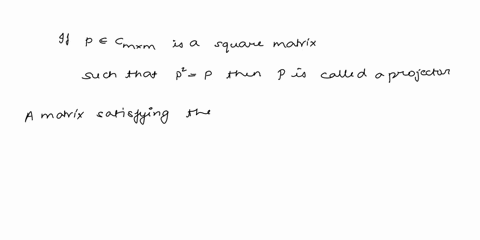 If P ∈ C_{m×m} is a square matrix
such that P² = P then P is called a projector
A matrix satisfying the